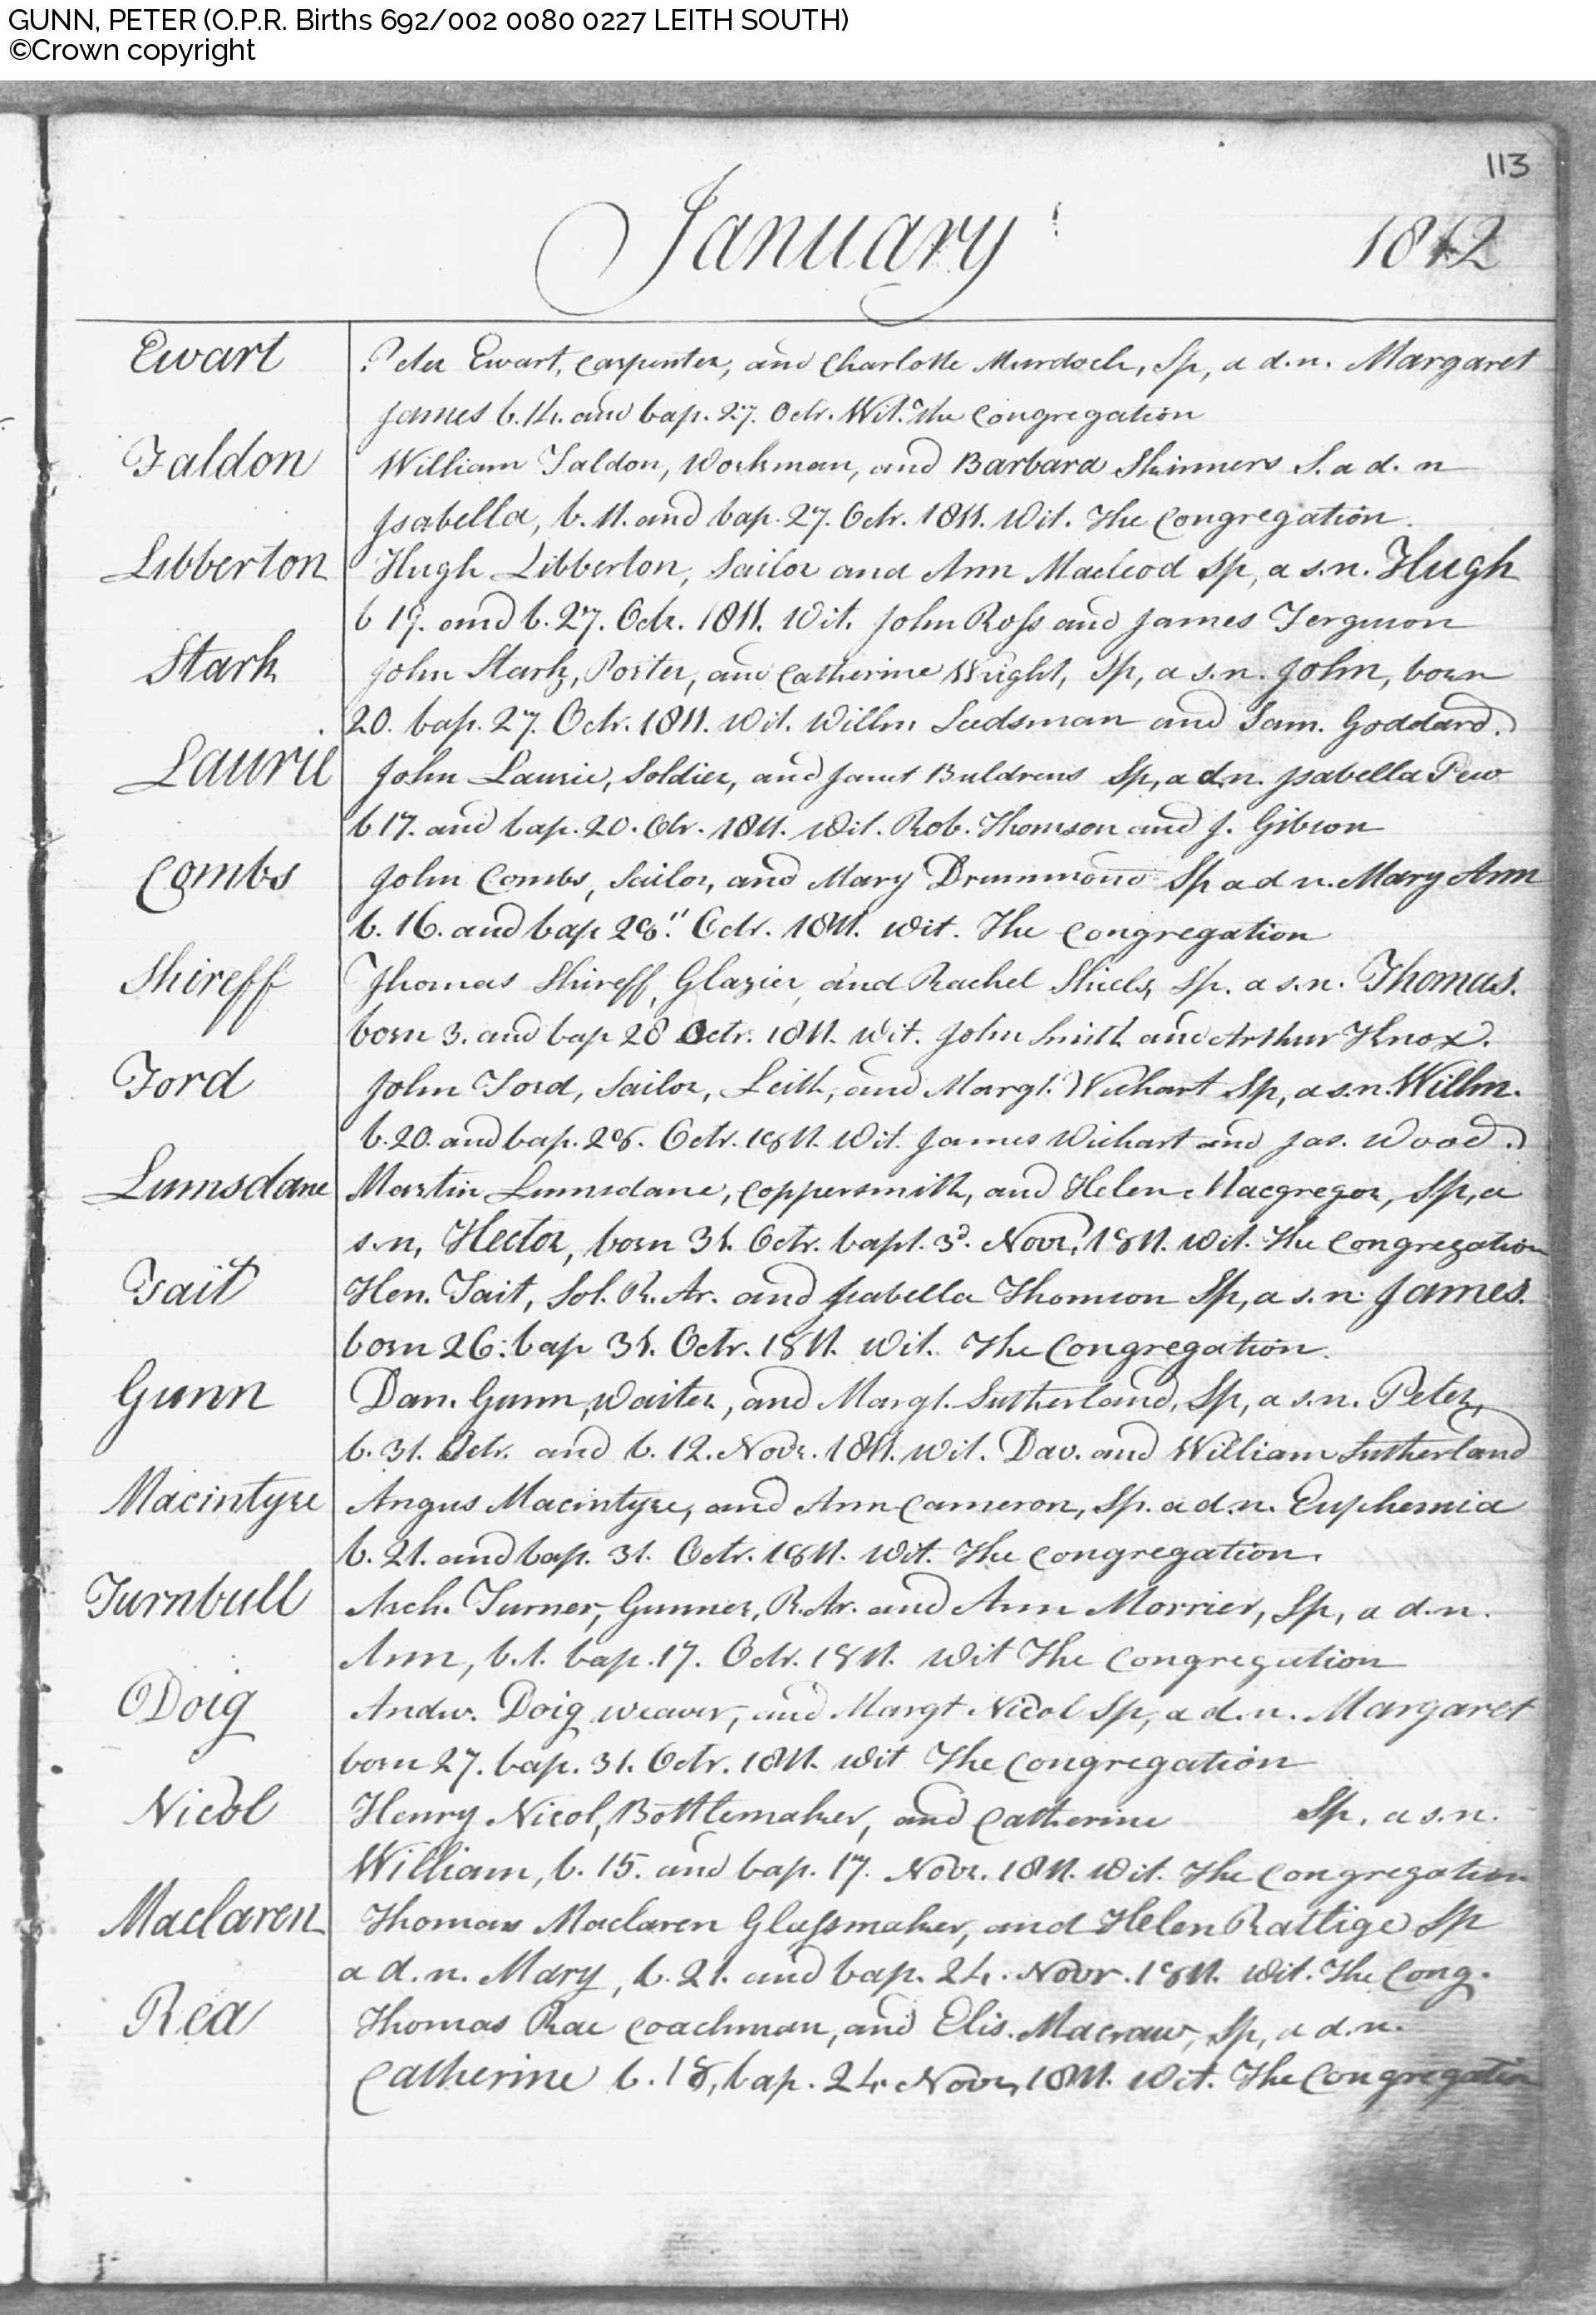 GUNN, PETER (O.P.R. Births 692/002 0080 0227 LEITH SOUTH)
©Crown copyright
113
January 1812
Ewart Peter Ewart, Carpenter, and Charlotte Murdoch, Sp, a d.n. Margaret
James b. 14. and bap. 27. Octr. Wit. the Congregation
Faldon William Faldon, Workman, and Barbara Skinners S. a d. n
Isabella, b. 11. and bap. 27. Octr. 1811. Wit. The Congregation.
Libberton Hugh Libberton, Sailor and Ann Macleod Sp, a s.n. Hugh
b 19. and b. 27. Octr. 1811. Wit. John Ross and James Ferguson
Stark John Stark, Porter, and Catherine Wright, Sp, a s.n. John, born
20. bap. 27. Octr. 1811. Wit. Willm Leedsman and Sam. Goddard.
Laurie John Laurie, Soldier, and Janet Buldrens Sp, a d.n. Isabella Pew
b 17. and bap. 20. Octr. 1811. Wit. Rob. Thomson and J. Gibson
Combs John Combs, Sailor, and Mary Drummond Sp a d n. Mary Ann
b. 16. and bap 28. Octr. 1811. Wit. The Congregation
Shireff Thomas Shireff, Glazier, and Rachel Shiels, Sp. a s.n. Thomas.
born 3. and bap 28 Octr. 1811. Wit. John Smith and Arthur Knox.
Ford John Ford, Sailor, Leith, and Margt. Wishart Sp, a s.n. Willm.
b. 20. and bap. 28. Octr. 1811. Wit. James Wishart and Jas. Wood.
Lumsdane Martin Lumsdane, Coppersmith, and Helen Macgregor, Sp, a
s.n, Hector, born 31. Octr. bapt. 3d. Novr. 1811. Wit. The Congregation
Tait Hen. Tait, Sol. R. Ar. and Isabella Thomson Sp, a s.n. James.
born 26. bap 31. Octr. 1811. Wit. The Congregation.
Gunn Dan. Gunn, Waiter, and Margt. Sutherland, Sp, a s.n. Peter,
b. 31. Octr. and b. 12. Novr. 1811. Wit. Dav. and William Sutherland
Macintyre Angus Macintyre, and Ann Cameron, Sp. a d.n. Euphemia
b. 21. and bap. 31. Octr. 1811. Wit. The Congregation.
Turnbull Arch. Turner, Gunner, R. Ar. and Ann Morrier, Sp, a d.n.
Ann, b. 1. bap. 17. Octr. 1811. Wit The Congregation
Doig Andw. Doig weaver, and Margt Nicol Sp, a d.n. Margaret
born 27. bap. 31. Octr. 1811. Wit The Congregation
Nicol Henry Nicol, Bottlemaker, and Catherine Sp. a s.n.
William, b. 15. and bap. 17. Novr. 1811. Wit. The Congregation
Maclaren Thomas Maclaren Glassmaker, and Helen Rattige Sp
a d.n. Mary, b. 21. and bap. 24. Novr. 1811. Wit. The Cong.
Rea Thomas Rae Coachman, and Elis. Macraw, Sp, a d.n.
Catherine b. 18, bap. 24. Novr, 1811. Wit. The Congregation